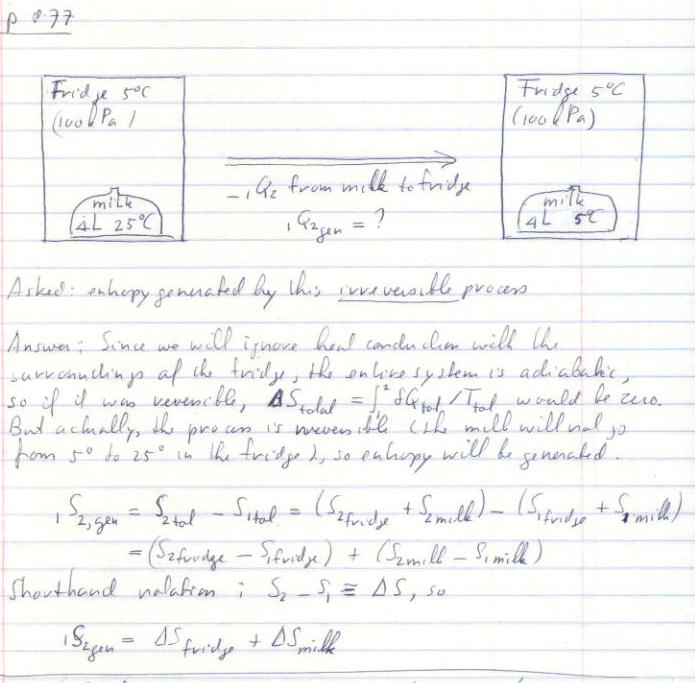 p 8.77
Fridge 5°C
(100 kPa)
milk
4L 25°C
- ₁Q₂ from milk to fridge
₁Q₂gen = ?
Fridge 5°C
(100 kPa)
milk
4L 5°C
Asked: entropy generated by this irreversible process
Answer: Since we will ignore heat conduction with the
surroundings of the fridge, the entire system is adiabatic,
so if it was reversible, ΔS total = ∫₁² δQtot / Ttot would be zero.
But actually, the process is irreversible (the milk will not go
from 5° to 25° in the fridge), so entropy will be generated.
₁S₂,gen = S₂tot - S₁tot = (S₂fridge + S₂milk) - (S₁fridge + S₁milk)
= (S₂fridge - S₁fridge) + (S₂milk - S₁milk)
Shorthand notation: S₂ - S₁ ≡ ΔS, so
₁S₂gen = ΔS fridge + ΔS milk